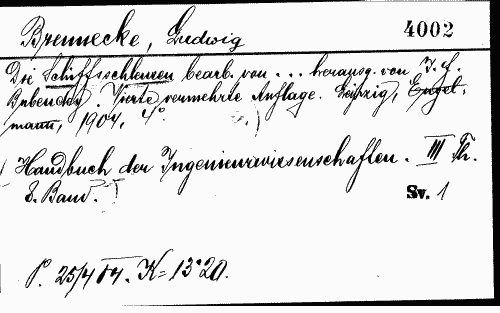 Brennecke, Ludwig 4002
Die Schiffsschleusen bearb. von ... herausg. von J. F.
Bubendey. Vierte vermehrte Auflage. Leipzig, Engel-
mann, 1904. 4°
Handbuch der Ingenieurwissenschaften. III Th.
8. Band. Sv. 1
P. 25/4 K = 13·20.